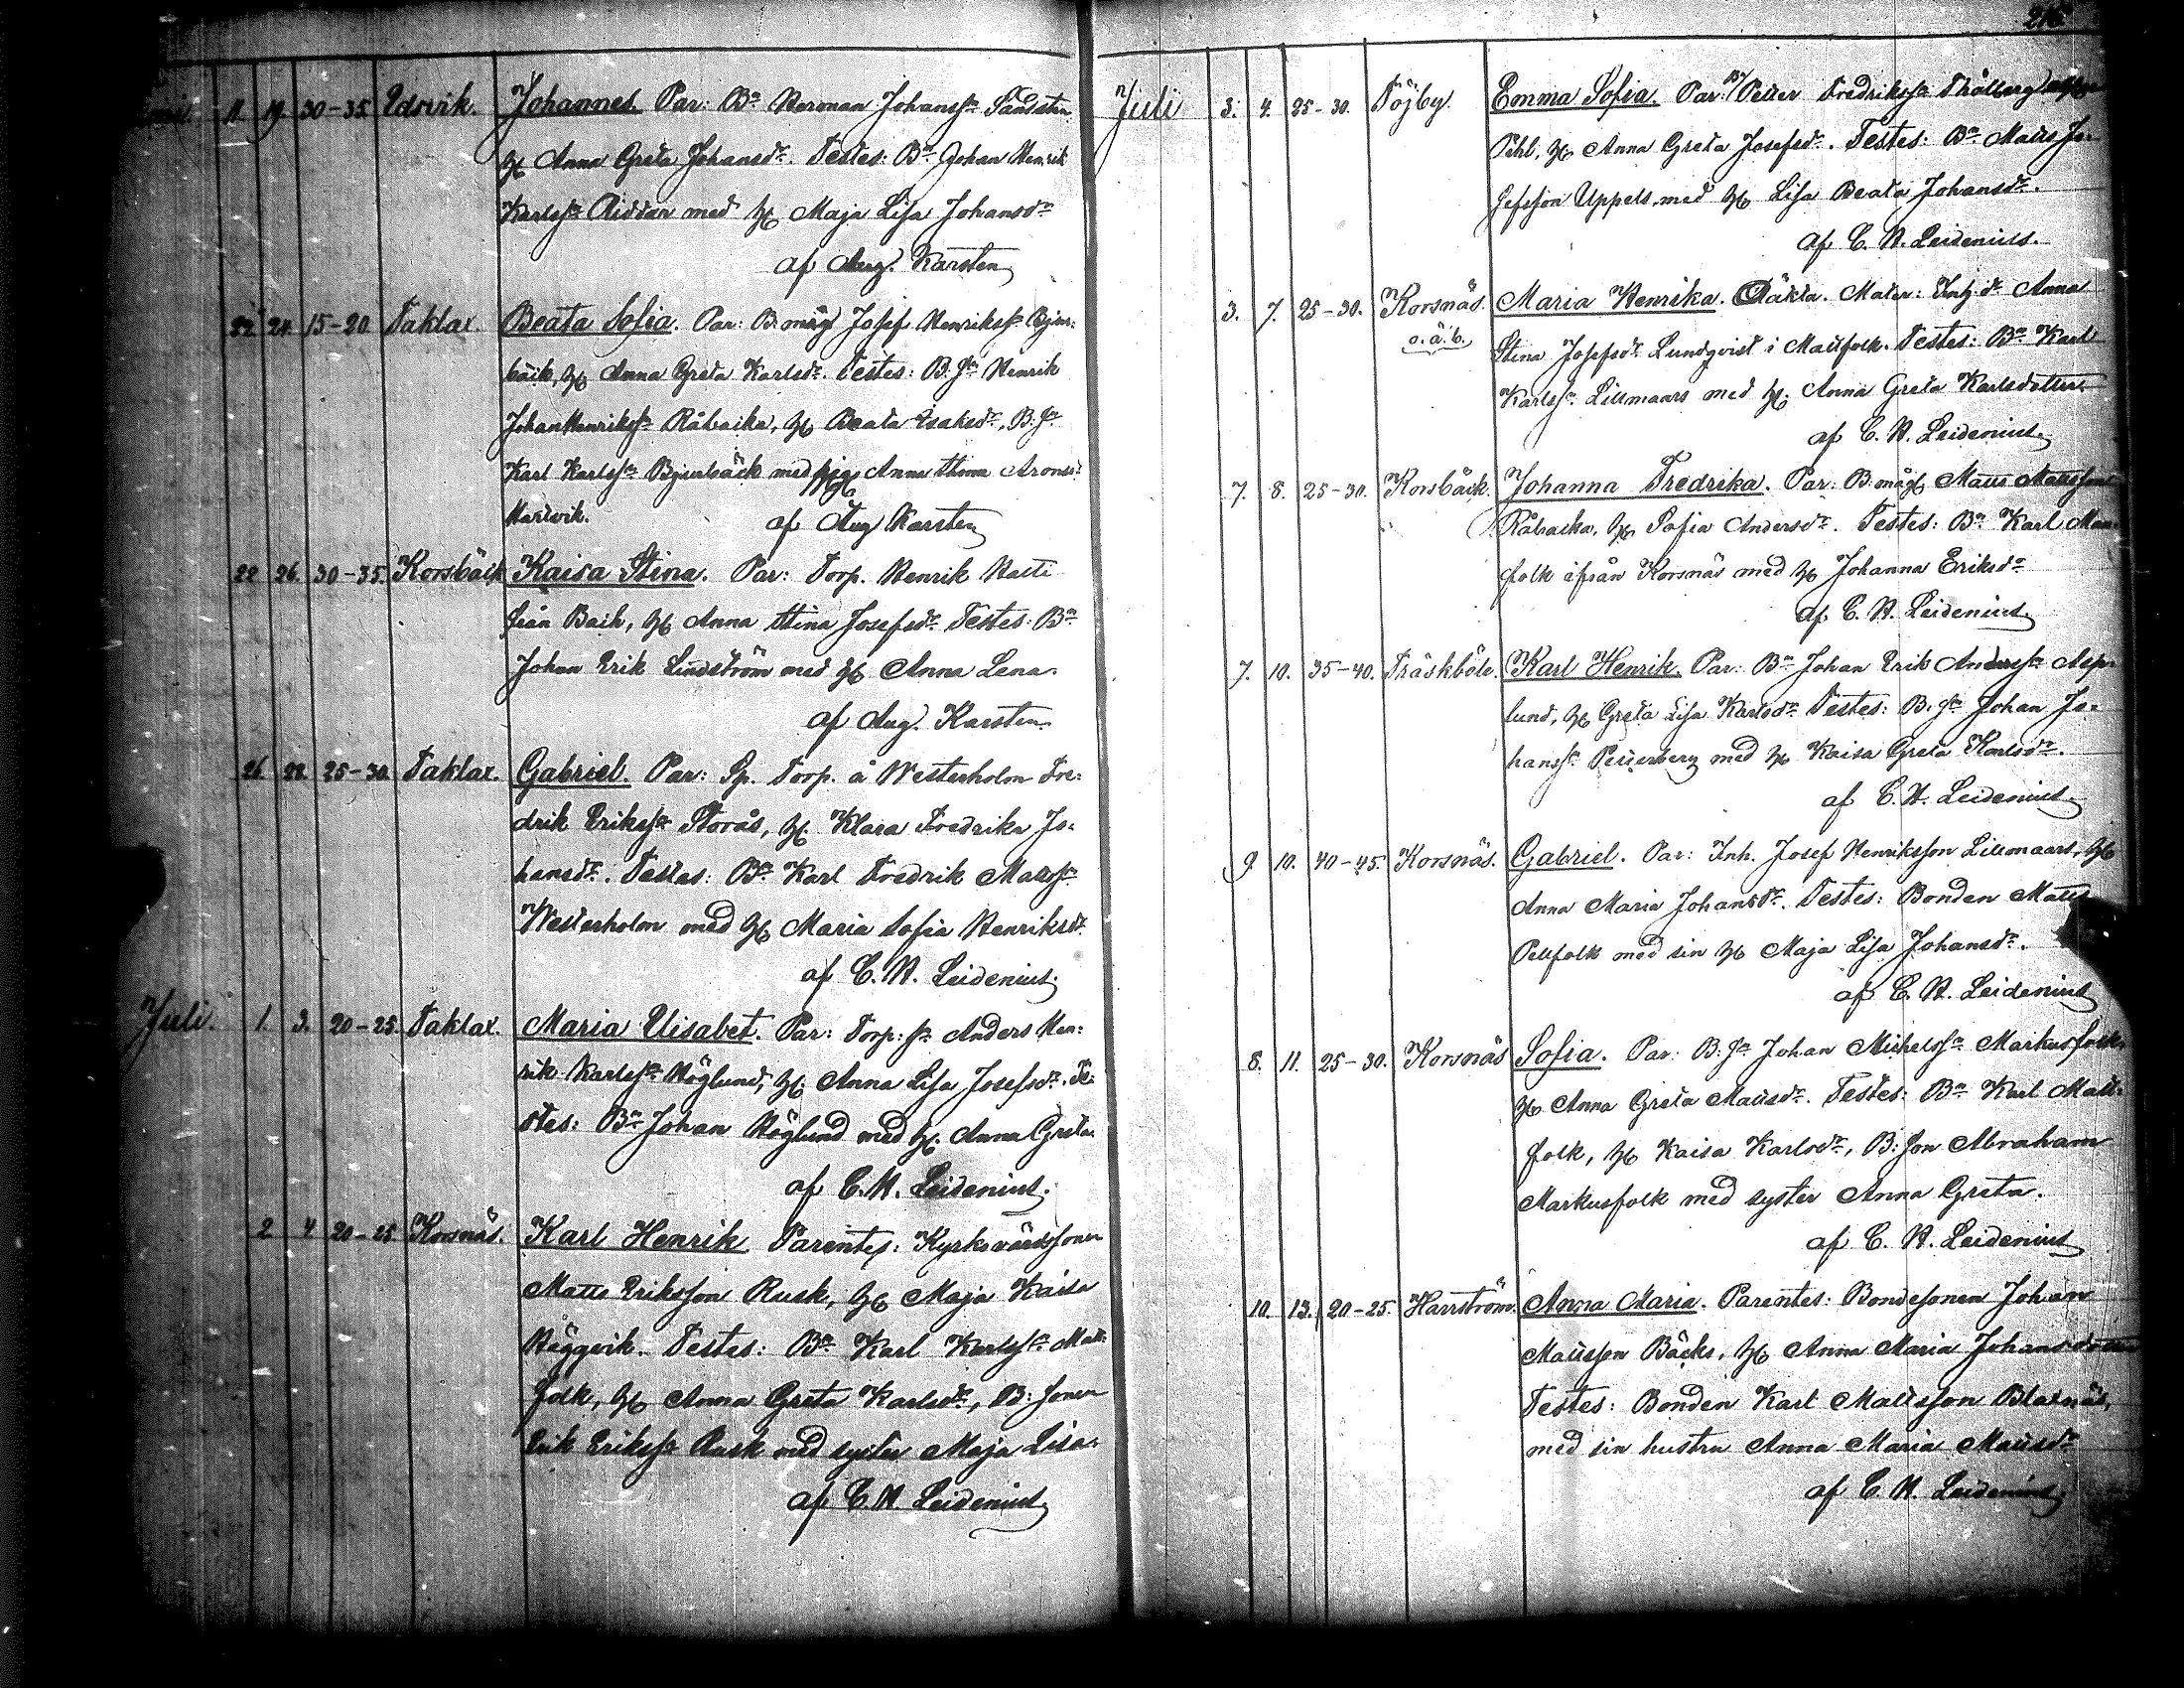 11. 19. 30-35. Edsvik. Johannes. Par: Bn Herman Johanssn Sandsten
H Anna Greta Johansdr. Testes: Bn Johan Henrik
Karlssn Riddar med H Maja Lisa Johansdr
af Aug. Karsten
22. 24. 15-20. Taklax. Beata Sofia. Par: B.måg Josef Henrikssn Bjur:
bäck, H Anna Greta Karlsdr. Testes: B. Sn Henrik
Johan Henrikssn Råbacka, H Beata Isaksdr, B. Sn
Karl Karlssn Bjurbäck med Anna Stina Aronsdr
af Aug Karsten
22 26. 30-35 Korsbäck Kaisa Stina. Par: Torp. Henrik
från Back, H Anna Stina Josefsdr. Testes: Bn
Johan Erik Lindström med H Anna Lena.
af Aug. Karsten.
26 28. 25-30. Taklax. Gabriel. Par: Sp. Torp. å Westerholm Fre:
drik Erikssn Storås, H. Klara Fredrika Jo:
hansdr. Testes: Bn Karl Fredrik Mattssn
Westerholm med H Maria Sofia Henriksdr.
af C. H. Leidenius.
Juli. 1. 3. 20-25. Taklax. Maria Elisabet. Par: Torp: sn Anders Hen:
rik Karlssn Höglund, H. Anna Lisa Josefsdr. Te:
stes: Bn Johan Höglund med H. Anna Greta.
af C. H. Leidenius.
2 4 20-25 Korsnäs. Karl Henrik. Parentes: Kyrkovärdssonen
Matts Eriksson Rusk, H Maja Kaisa
Häggvik. Testes: Bn Karl Karlssn Matt:
folk, H Anna Greta Karlsdr, B: sonen
Erik Erikssn Rusk med syster Maja Lisa.
af C. H. Leidenius.
Juli 3. 4. 25-30. Töjby. Emma Sofia. Par: Petter Fredrikssn Thölberg
Pihl, H Anna Greta Josefsdr. Testes: Bn Matts Jo:
sefsson Uppels med H Lisa Beata Johansdr.
af C. H. Leidenius.
3. 7. 25-30. Korsnäs. Maria Henrika. Oäkta. Mater: Inh. dr Anna
o.ä.b. Stina Josefsdr Lundqvist i Mattfolk. Testes: Bn Karl
Karlssn Lillmaars med H. Anna Greta Karlsdotter.
af C. H. Leidenius.
7. 8. 25-30. Korsbäck. Johanna Fredrika. Par: B.måg Matts Mattsson
Råbacka, H Sofia Andersdr. Testes: Bn Karl
folk ifrån Korsnäs med H Johanna Eriksdr
af C. H. Leidenius
7. 10. 35-40. Träskböle. Karl Henrik. Par: Bn Johan Erik Anderssn Asp:
lund, H Greta Lisa Karlsdr Testes: B. Sn Johan Jo:
hanssn Petterberg med H Kaisa Greta Karlsdr.
af C. H. Leidenius.
9. 10. 40-45. Korsnäs. Gabriel. Par: Inh. Josef Henriksson Lillmaars, H
Anna Maria Johansdr. Testes: Bonden Matts
Pellfolk med sin H Maja Lisa Johansdr.
af C. H. Leidenius
8. 11. 25-30. Korsnäs Sofia. Par: B: Sn Johan Michelssn Markusfolk,
H Anna Greta Mattsdr. Testes: Bn Karl Matt:
folk, H Kaisa Karlsdr, B: son Abraham
Markusfolk med syster Anna Greta.
af C. H. Leidenius
10. 13. 20-25. Harrström. Anna Maria. Parentes: Bondesonen Johan
Mattsson Bäcks, H Anna Maria Johansdotter
Testes: Bonden Karl Mattsson Blaxnäs,
med sin hustru Anna Maria Mattsdr
af C. H. Leidenius.